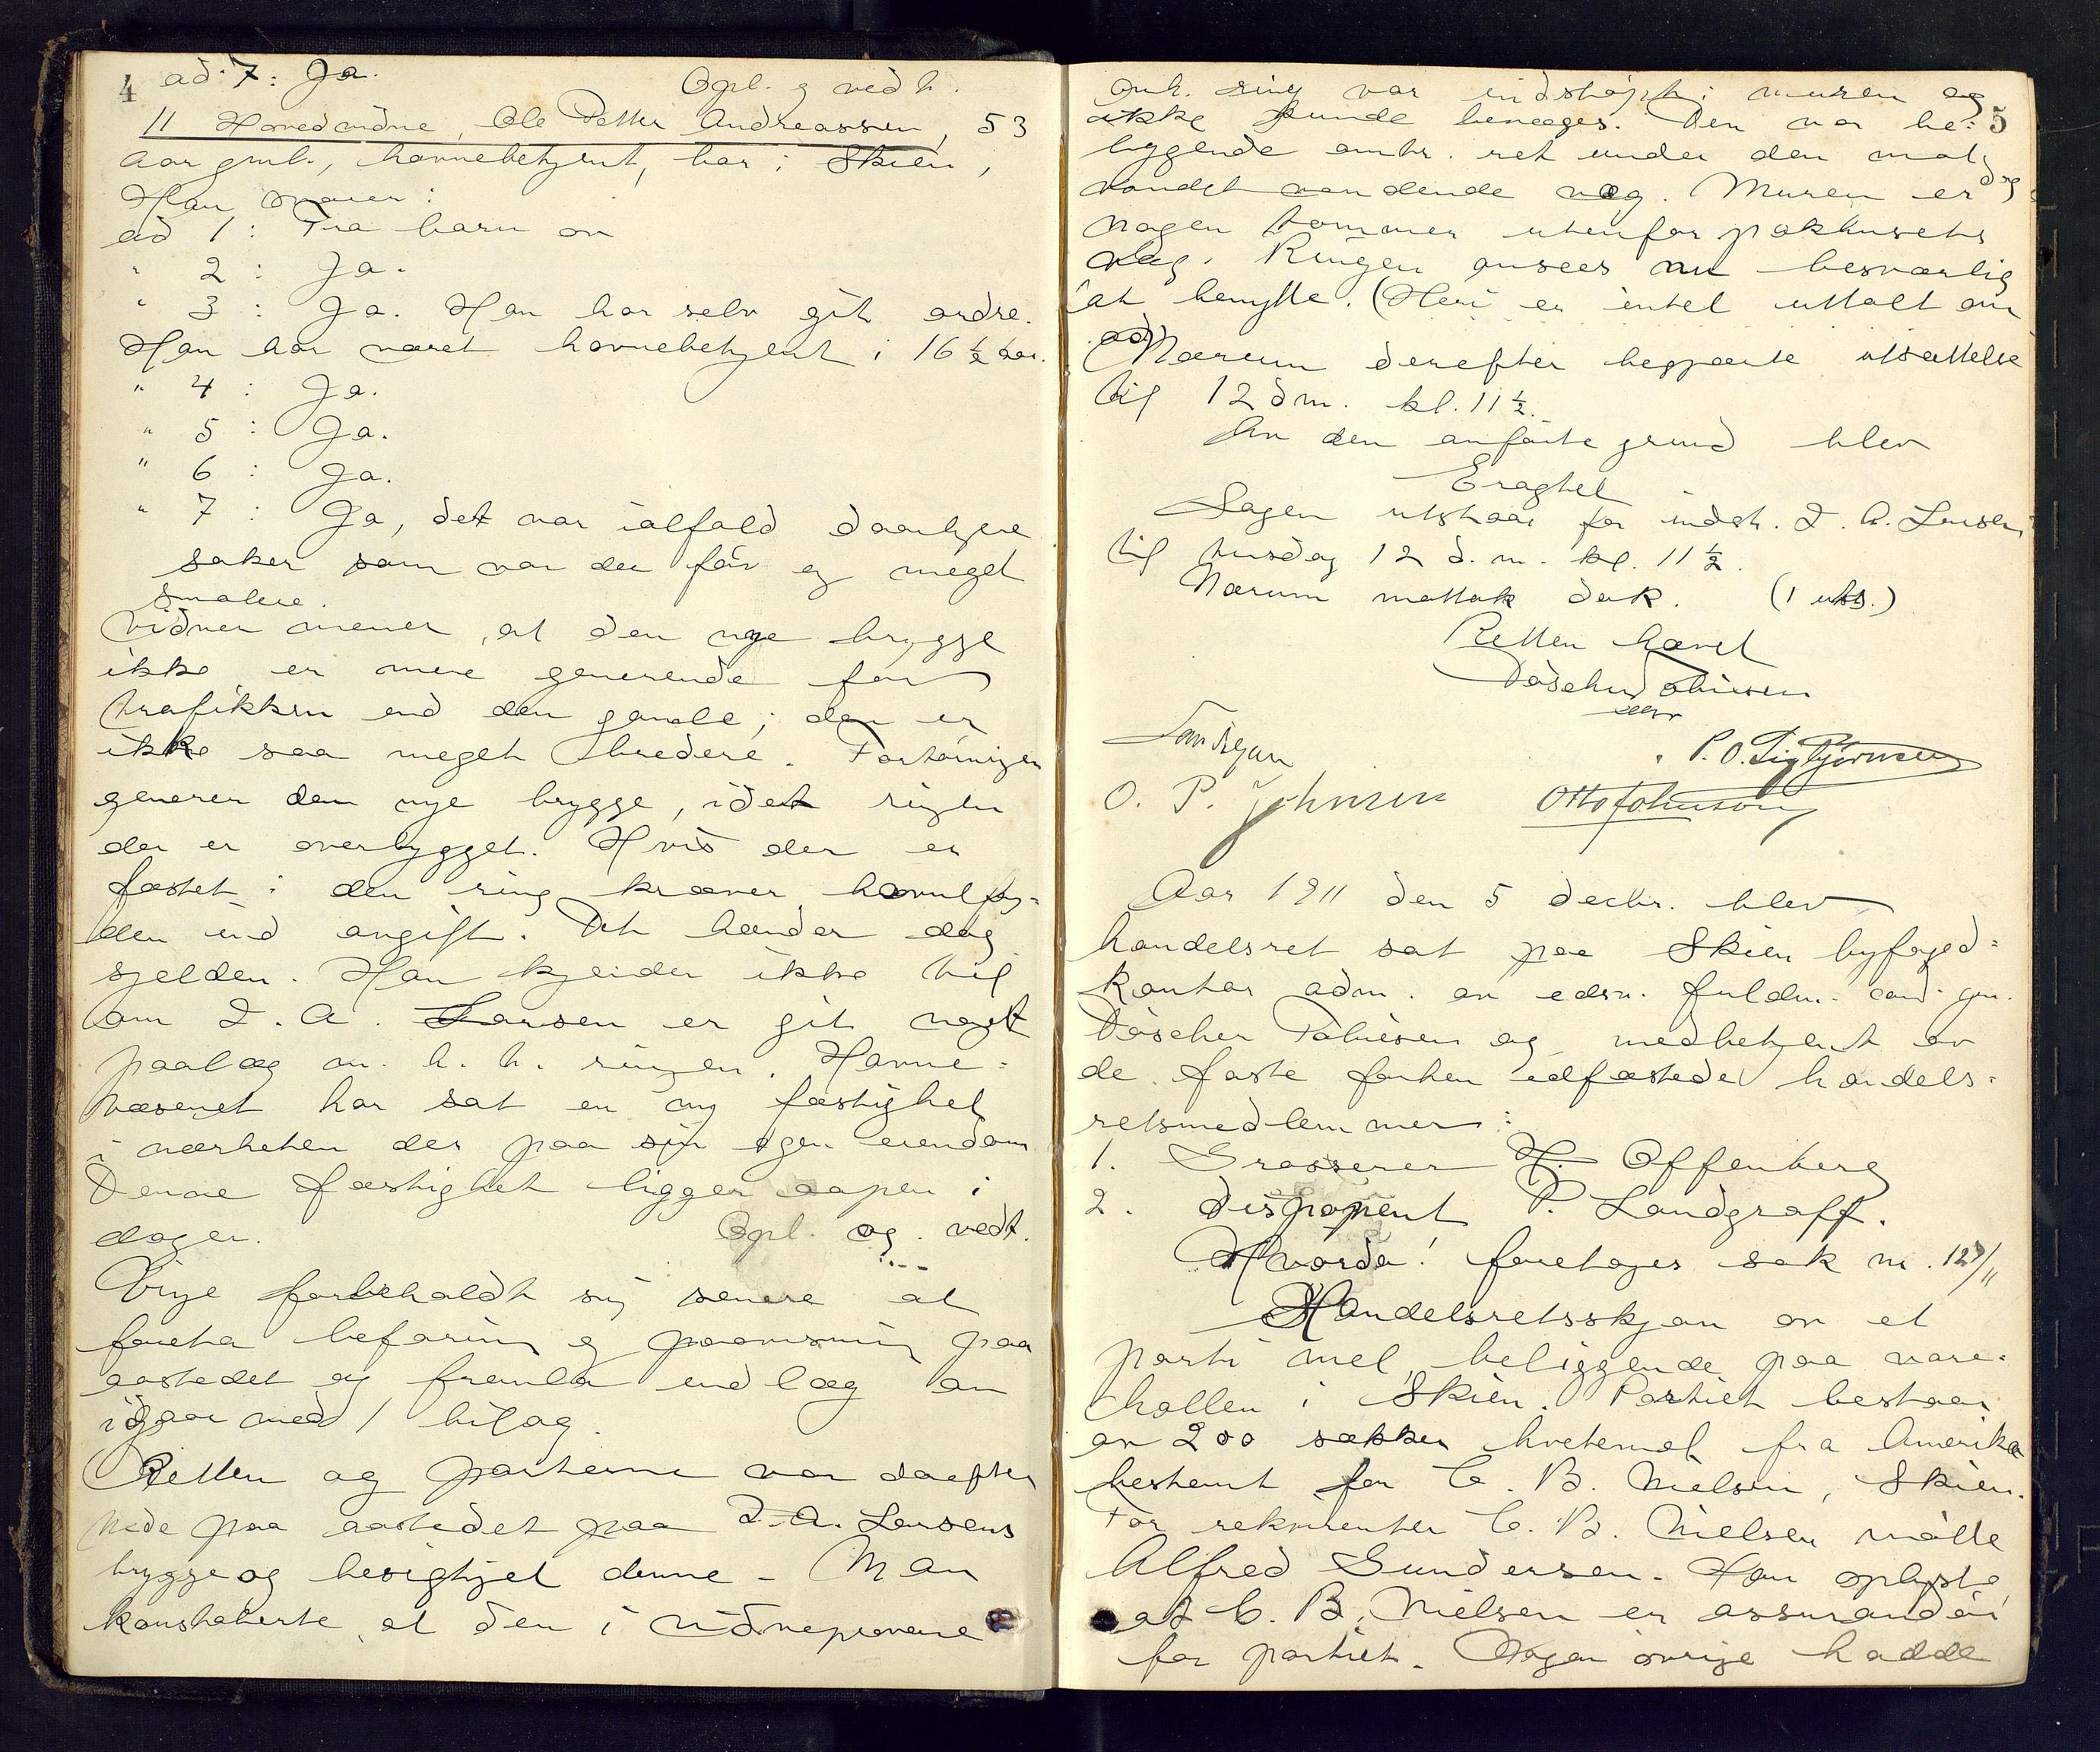 4 ad. 7: Ja.
Opl. og vedt.
11 Hovedvidne, Ole Petter Andreassen, 53
aar gml., havnebetjent, bor i Skien,
Han svarer:
ad 1: Fra barn av
" 2: Ja.
" 3: Ja. Han har selv git ordre.
Han har været havnebetjent i 16 ½ aar.
" 4: Ja.
" 5: Ja.
" 6: Ja.
" 7: Ja, det var ialfald daarligere
saker som var der før og meget
smalere.
Vidnet mener, at den nye brygge
ikke er mere generende for
trafikken end den gamle; den er
ikke saa meget bredere. Fortøiningen
generer den nye brygge, idet ringen
der er overbygget. Hvis der er
fæstet i den ring kræver havnefog-
den ind avgift. Det hænder dog
sjelden. Han kjender ikke til
om I. A. Larsen er git noget
paalæg m. h. t. ringen. Havne-
væsenet har sat en ny fæstighet
i nærheten der paa sin egen eiendom
Denne fæstighet ligger aapen i
dagen. Opl. og vedt.
forbeholdt sig senere at
foreta befaring og paavisning paa
aastedet og fremla indlæg av
igaar med 1 bilag.
Retten og parterne var derefter
nede paa aastedet paa I. A. Larsens
brygge og besigtiget denne – Man
konstaterte, at den i vidneprovene
omh. ring var indstøpt i muren og
ikke kunde bevæges. Den var be- 5
liggende omtr. ret under den mot
vandet vendende væg. Muren er
nogen tommer utenfor pakhusets
væg. Ringen ansees nu besværlig
at benytte. (Heri er intet uttalt om
Nærum derefter begjærte utsættelse
til 12 dm. kl. 11 ½.
Av den anførte grund blev
Eragtet
Sagen utstaar for indst. I. A. Larsen
til tirsdag 12 d. m. kl. 11 ½.
Nærum mottok dok. (1 uts.)
Retten hævet
Døscher Tobiesen
O. P. Johnsen Otto Johnsen
Aar 1911 den 5 decbr. blev
handelsret sat paa Skien byfoged-
kontor adm. av edsv. fuldm. cand. jur.
Døscher Tobiesen og medbetjent av
de faste forhen edfæstede handels-
retsmedlemmer:
1. Grosserer H. Offenberg
2. disponent P. Landgraff.
Hvorda: foretages sak nr. 127/11
Handelsretsskjøn av et
parti mel, beliggende paa vare-
hallen i Skien. Partiet bestaar
av 200 sækker hvetemel fra Amerika
bestemt for C. B. Nielsen, Skien.
For rekvirenten C. B. Nielsen møtte
Alfred Gundersen. Han oplyste
at C. B. Nielsen er assurandør
for partiet. Nogen øvrige hadde